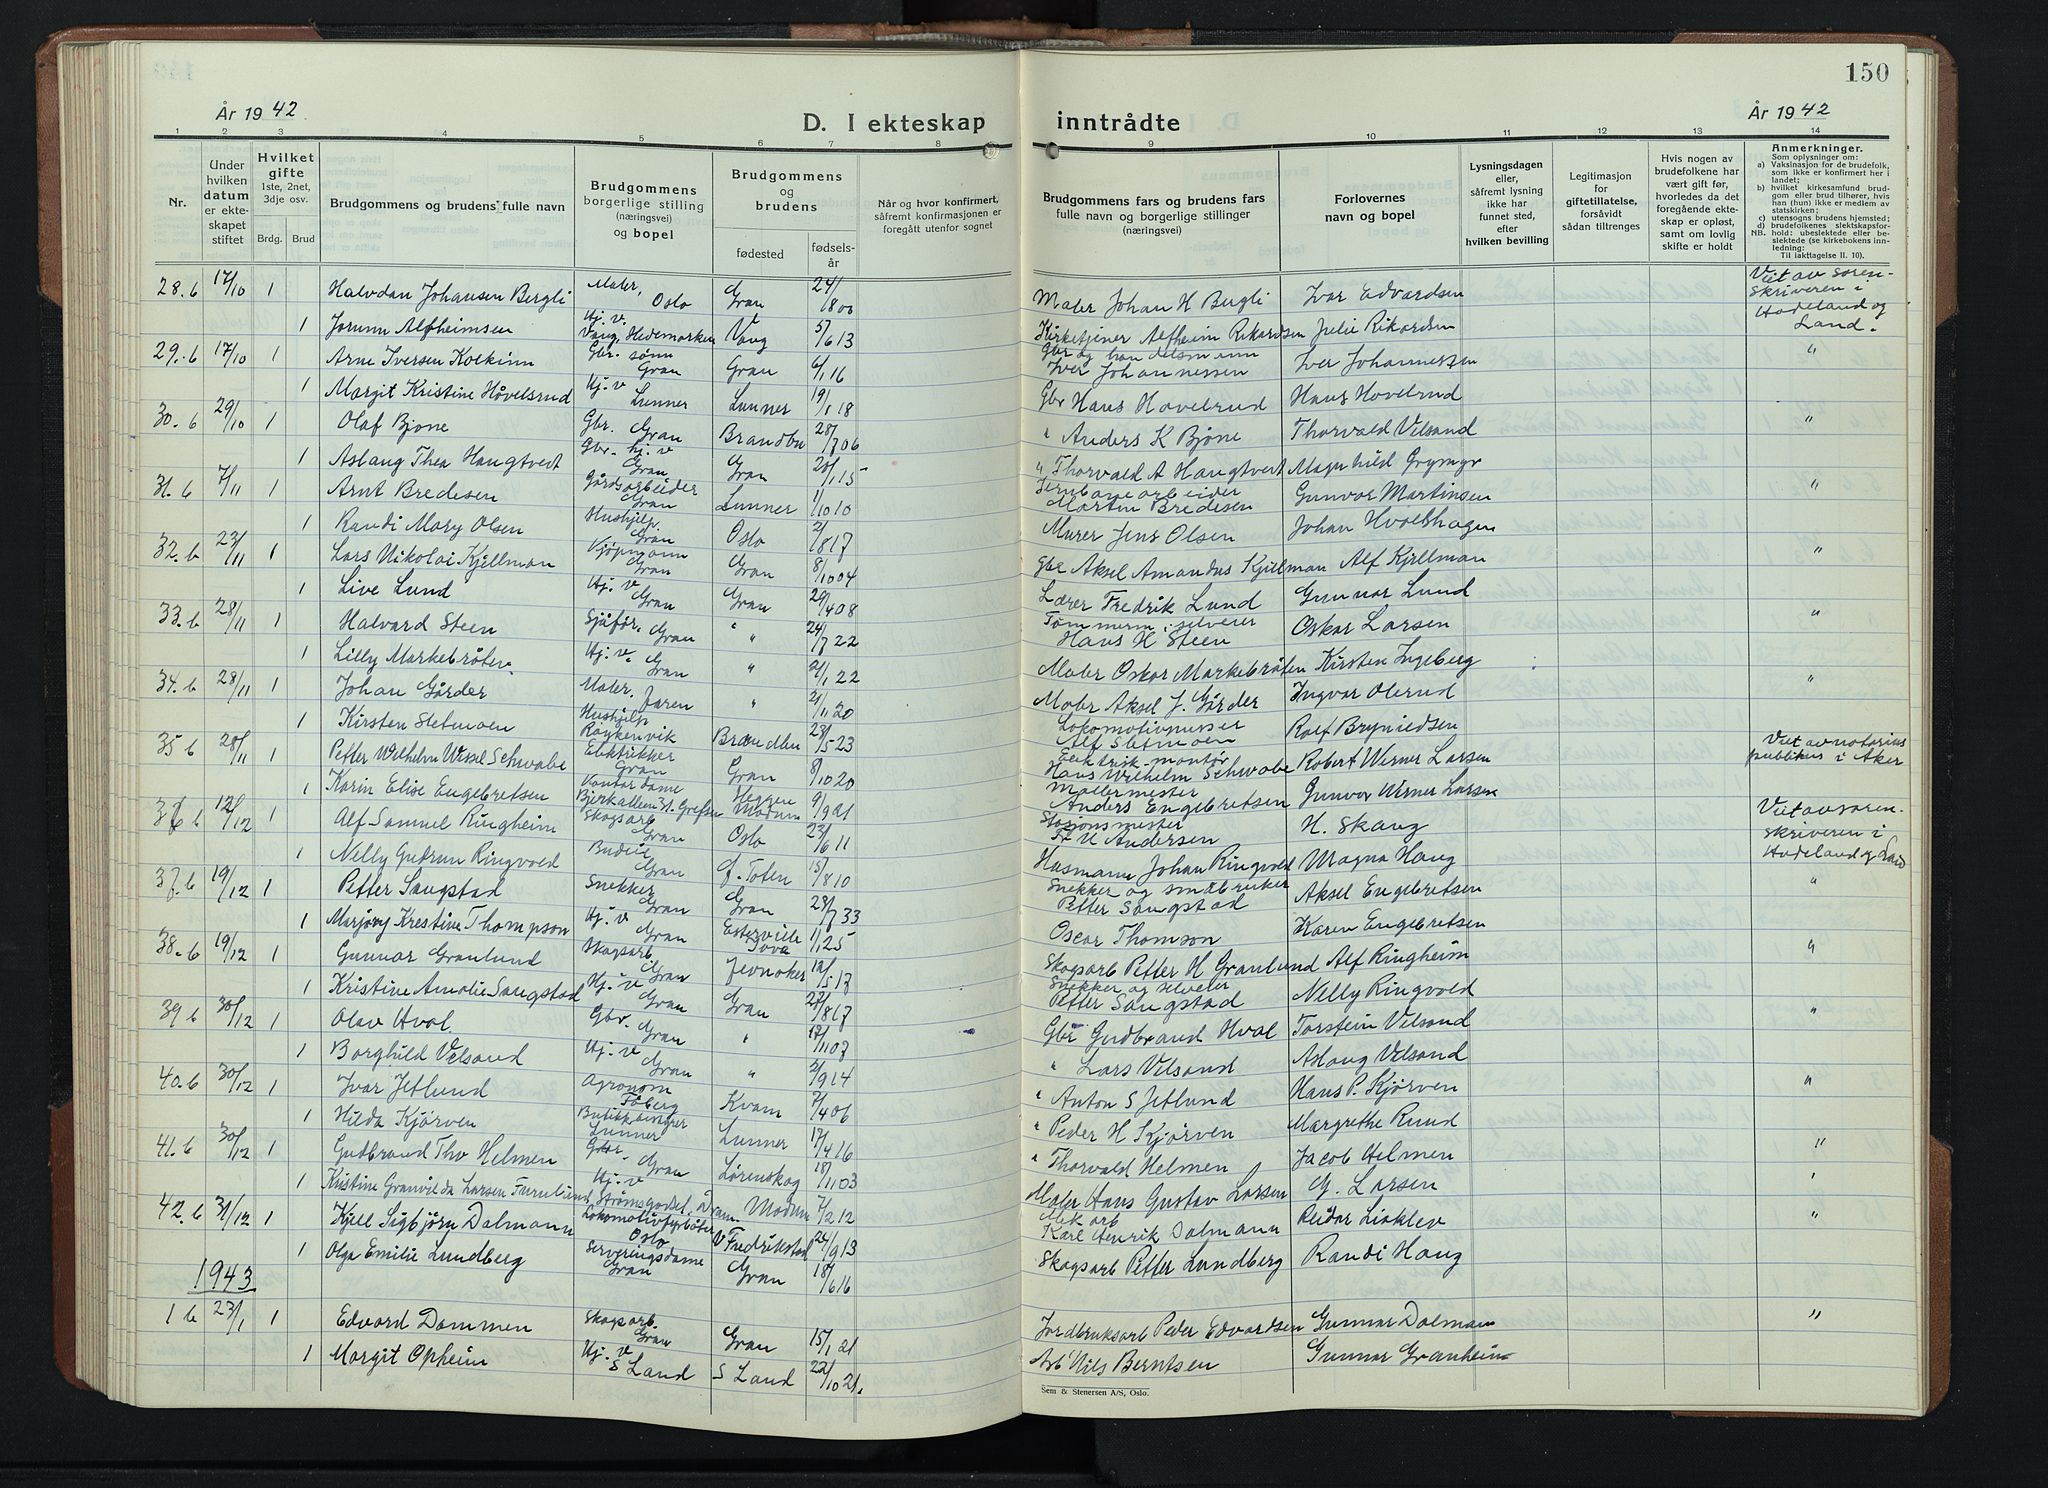 150
År 1942
D. I ekteskap inntrådte
År 1942
1 2 3 4 5 6 7 8 9 10 11 12 13 14
Nr.
Under hvilken datum er ekteskapet stiftet
Hvilket gifte 1ste, 2net, 3dje osv.
Brdg. Brud
Brudgommens og brudens fulle navn
Brudgommens borgerlige stilling (næringsvei) og bopel
Brudgommens og brudens
fødested fødsels-år
Når og hvor konfirmert, såfremt konfirmasjonen er foregått utenfor sognet
Brudgommens fars og brudens fars fulle navn og borgerlige stillinger (næringsvei)
Forlovernes navn og bopel
Lysningsdagen eller, såfremt lysning ikke har funnet sted, efter hvilken bevilling
Legitimasjon for giftetillatelse, forsåvidt sådan tiltrenges
Hvis nogen av brudefolkene har vært gift før, hvorledes da det foregående ekteskap er opløst, samt om lovlig skifte er holdt
Anmerkninger.
Som oplysninger om:
a) Vaksinasjon for de brudefolk, som ikke er konfirmert her i landet;
b) hvilket kirkesamfund brudgom eller brud tilhører, hvis han (hun) ikke er medlem av statskirken;
c) utensogns brudens hjemsted;
d) brudefolkenes slektskapsforhold: ubeslektede eller beslektede (se kirkebokens innledning:
NB. Til iakttagelse II. 10).
28. b 17/10 1 Halvdan Johansen Bergli Maler, Oslo Gran 24/1 800 Maler Johan H Bergli Ivar Edvardsen Viet av sorenskriveren i Hadeland og Land.
1 Jorunn Alfheimsen Hj. v. Vang, Hedemarken Vang 5/6 13 Kirketjener Alfheim Rikardsen Julie Rikardsen
29. b 17/10 1 Arne Iversen Koekinn Gbr. sønn Gran Gran 6/1 16 Gbr og handelsmann Iver Johannessen Iver Johannessen "
1 Margit Kristine Hovelsrud Hj. v Lunner Lunner 19/1 18 Gbr Hans Hovelsrud Hans Hovelsrud
30. b 29/10 1 Olaf Bjone Gbr. Gran Brandbu 28/7 06 " Anders K Bjone Thorvald Velsand "
1 Aslaug Thea Haugtvedt Gbr. hj. v Gran Gran 20/1 15 " Thorvald A Haugtvedt Magnhild Grymyr
31. b 7/11 1 Arnt Bredesen Gårdsarbeider Gran Lunner 1/10 10 Jernbanearbeider Martin Bredesen Gunvor Martinsen "
1 Randi Mary Olsen Hushjelp. Gran Oslo 2/8 17 Murer Jens Olsen Johan Hvalshagen
32. b 23/11 1 Lars Nikolai Kjellman Kjøpmann Gran Gran 8/10 04 Gbr Aksel Amandus Kjellman Alf Kjellman "
1 Live Lund Hj. v Gran Gran 29/4 08 Lærer Fredrik Lund Gunnar Lund
33. b 28/11 1 Halvard Steen Sjåfør, Gran " 24/7 22 Tømmerm, selveier Hans H Steen Oskar Larsen "
1 Lilly Markebråten Hj. v. Gran " 2/1 22 Maler Oskar Markebråten Kirsten Ingeberg
34. b 28/11 1 Johan Gårder Maler. Jaren " 21/11 20 Maler Aksel J. Gårder Ingvar Olerud "
1 Kirsten Sletmoen Hushjelp Røykenvik Brandbu 23/5 23 Lokomotivpusser Alf Sletmoen Rolf Brynildsen
35 b 28/11 1 Petter Wilhelm Wessel Schwabe Elektrikker Gran Gran 8/10 20 Elektrisk-montør Hans Wilhelm Schwabe Robert Werner Larsen Viet av notarius publikus i Aker
1 Karin Elise Engebretsen Kontordame Bjerkealleen 31. Grefsen Heggen Modum 9/9 21 Møllermester Anders Engebretsen Gunvor Werner Larsen
36 b 12/12 1 Alf Samuel Ringheim Skogsarb Gran Oslo 23/6 11 Stasjonsmester H Andersen H. Skaug Viet av sorenskriveren i Hadeland og Land
1 Nelly Gudrun Ringvold Budeie Gran Ø. Toten 15/8 10 Husmann Johan Ringvold Magna Haug
37. b 19/12 1 Petter Sangstad Snekker Gran Gran 23/7 33 Snekker og småbruker Petter Sangstad Aksel Engebretsen "
1 Marjory Kristine Thompson Hj. v Gran Esterville Iova 11/1 25 Oscar Thomson Karen Engebretsen
38. b 19/12 1 Gunnar Granlund Skogsarb. Gran Jevnaker 12/5 17 Skogsarb Petter H Granlund Alf Ringheim "
1 Kristine Amalie Sangstad Hj. v Gran Gran 27/8 17 Snekker og selveier Petter Sangstad Nelly Ringvold
39 b 30/12 1 Olav Hval Gbr. Gran " 17/11 07 Gbr Gudbrand Hval Torstein Velsand "
1 Borghild Velsand Hj. v Gran " 2/9 14 " Lars Velsand Aslaug Velsand
40. b 30/12 1 Ivar Jetlund Agronom Fåberg Kvam 2/4 06 " Anton S Jetlund Hans P. Kjørven "
1 Hilda Kjørven Lunner Lunner 17/4 16 " Peder H Kjørven Margrethe Ruud
41. b 30/12 1 Gudbrand Thv Helmen Gbr. Gran Lørenskog 18/11 03 " Thorvald Helmen Jacob Helmen "
1 Kristine Granvilda Larsen Furulund Hj. v Strømsgodset, Dram. Modum 7/2 12 Maler Hans Gustav Larsen G. Larsen "
42. b 31/12 1 Kjell Sigbjørn Dalmann Lokomotivfyrbøter Oslo V Fredrikstad 24/9 13 Karl Henrik Dalmann Reidar Linkløv "
1 Olga Emilie Lundberg Serveringsdame Gran Gran 18/6 16 Skogsarb Petter Lundberg Randi Haug
1943
1 b 23/1 1 Edvard Dammen Skogsarb. Gran Gran 15/1 21 Jordbruksarb Peder Edvardsen Gunnar Dalmann "
1 Margit Opheim Hj. v S Land S Land 22/10 21. Arb Nils Berntsen Gunnar Granheim
Sem & Stenersen A/S, Oslo.